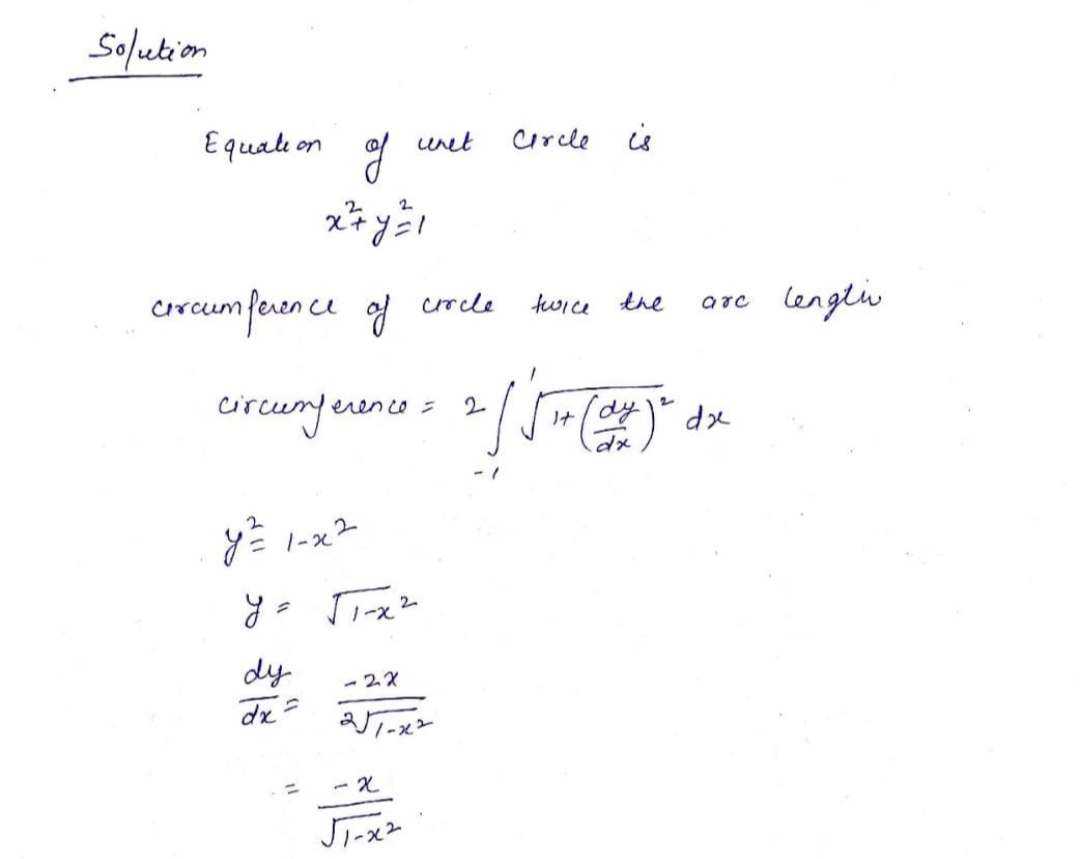 Solution
Equation of unit circle is
x²+y²=1
circumference of circle twice the arc length
circumference = 2 ∫₋₁¹ √(1+(dy/dx)²) dx
y² = 1-x²
y = √(1-x²)
dy/dx = -2x / 2√(1-x²)
= -x / √(1-x²)